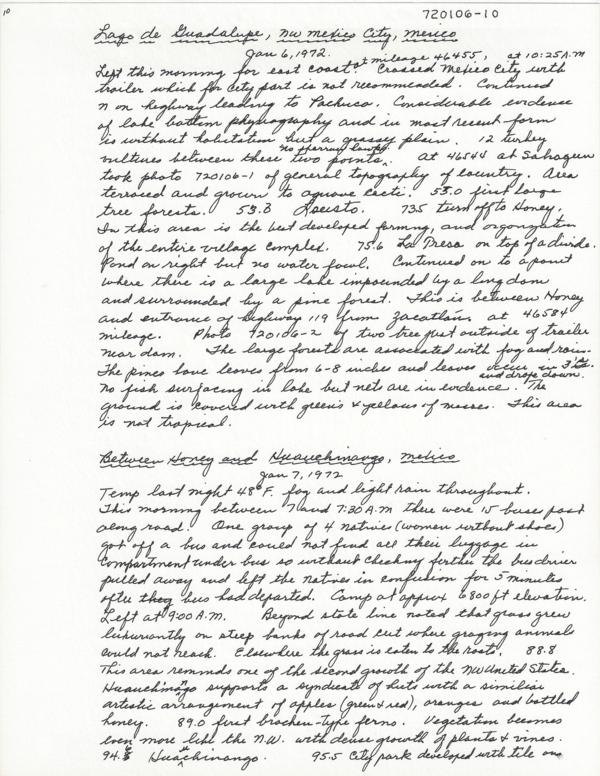 10
720106-10
Lago de Guadalupe, NW Mexico City, Mexico
Jan 6, 1972.
at mileage 46455, at 10:25 A.M
Left this morning for east coast. Crossed Mexico City with
trailer which for city part is not recommended. Continued
N on highway leading to Pachuca. Considerable evidence
of lake bottom physiography and in most recent form
is without habitation but a grassy plain. 12 turkey
no sparrow hawks
vultures between these two points. At 46544 at Sahagun
took photo 720106-1 of general topography of country. Area
terraced and grown to aguave cacti. 53.0 first large
tree forests. 53.3 Locusts. 73.5 turn off to Honey.
In this area is the best developed farming, and organization
of the entire village complex. 75.6 La Presa on top of a divide.
Pond on right but no water fowl. Continued on to a point
where there is a large lake impounded by a long dam
and surrounded by a pine forest. This is between Honey
and entrance of highway 119 from Zacatlan, at 46584
mileage. Photo 720106-2 of two tree just outside of trailer
near dam. The large forests are associated with fog and rain.
The pines have leaves from 6-8 inches and leaves occur in 3's
and droop down.
No fish surfacing in lake but nets are in evidence. The
ground is covered with greens & yellows of mosses. This area
is not tropical.
Between Honey and Huauchinango, Mexico
Jan 7, 1972
Temp last night 48°F. fog and light rain throughout.
This morning between 7 and 7:30 A.M there were 15 buses past
along road. One group of 4 natives (women without shoes)
got off a bus and could not find all their luggage in
compartment under bus so without checking further the bus driver
pulled away and left the natives in confusion for 5 minutes
after they bus had departed. Camp at approx 6800 ft elevation.
Left at 9:00 A.M. Beyond state line noted that grass grew
luxuriantly on steep banks of road cut where grazing animals
could not reach. Elsewhere the grass is eaten to the roots. 88.8
This area reminds one of the second growth of the NW United States.
Huauchinango supports a syndicate of huts with a similiar
artistic arrangement of apples (green & red), oranges and bottled
honey. 89.0 first bracken-type ferns. Vegetation becomes
even more like the N.W. with dense growth of plants & vines.
94. Huauchinango. 95.5 City park developed with tile on